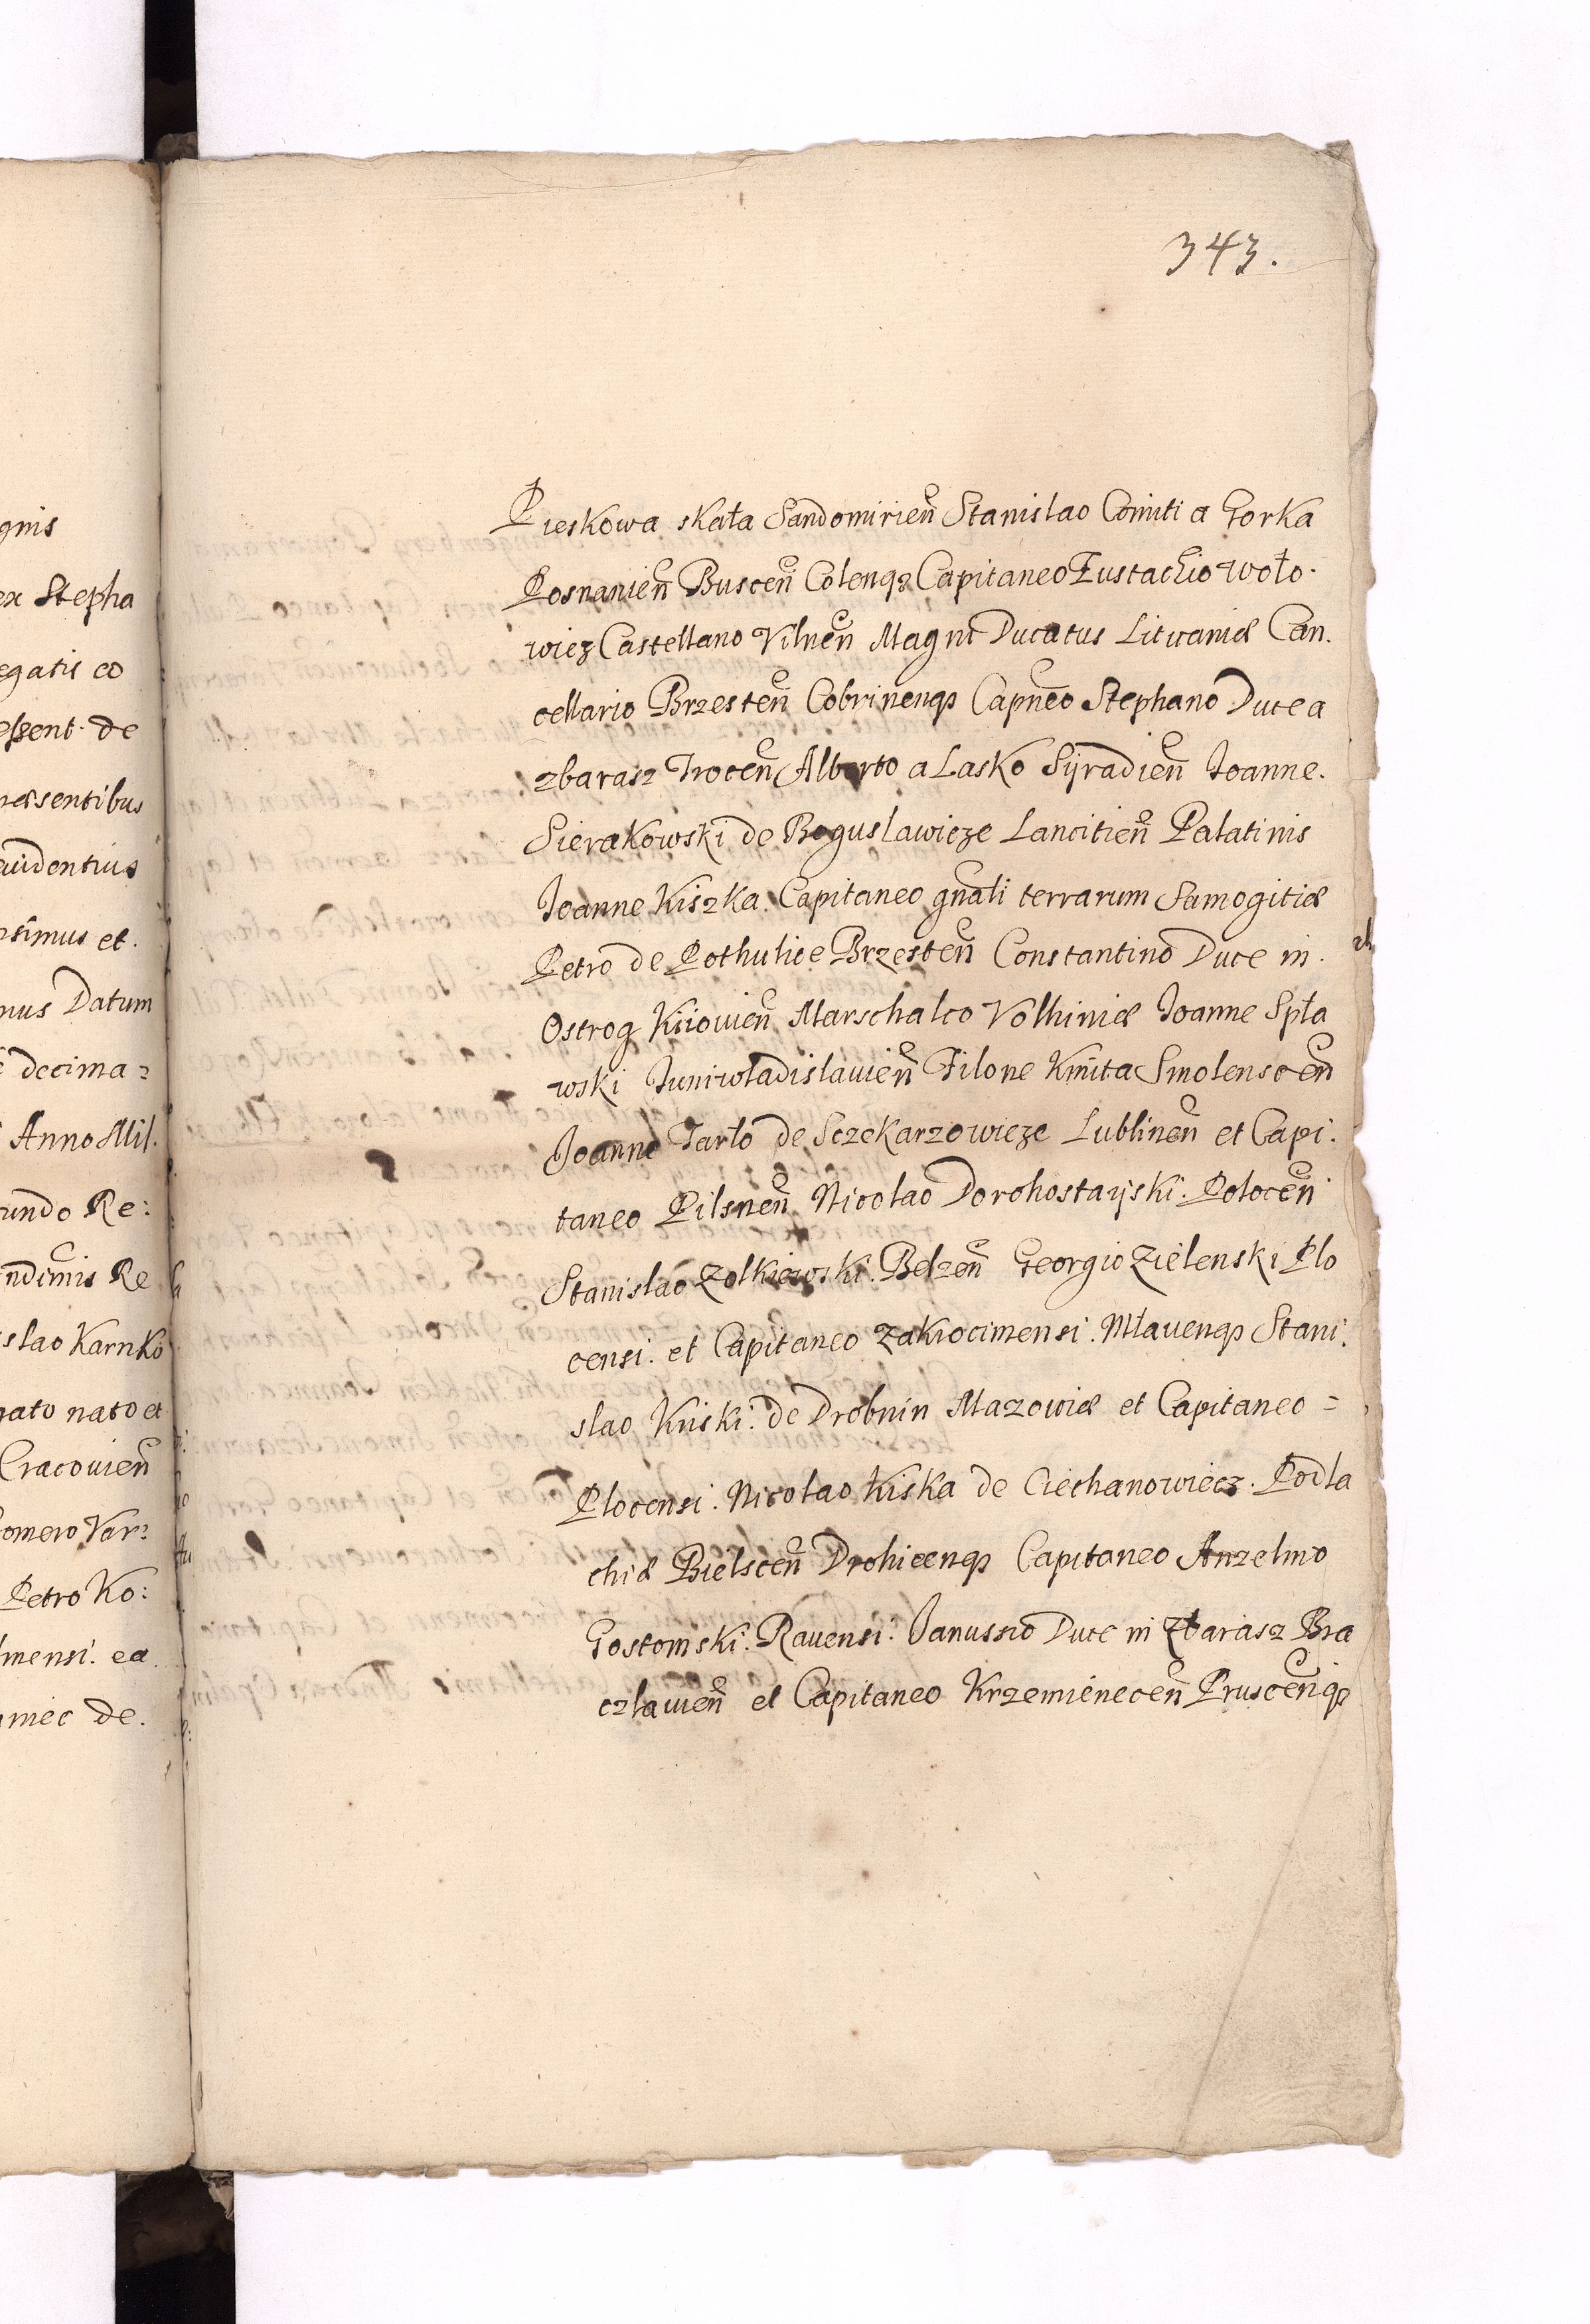 gnis
ex Stepha
egatis eo
essent. de
næsentibus
auidentius
rsimus et.
mus Datum
decima=
Anno Mil.
undo Re:
ndimis Re
slao Karnko
gato nato et
Cracouien̄
omero Var=
Petro Ko:
lmensi. ea
miec de.
343.
Pieskowa skała Sandomirien̄ Stanislao Comiti a Gorka
Posnanien̄ Buscen̄ Colenqz Capitaneo Eustachio Woło.
wiez Castellano Vilnen̄ Magni Ducatus Lituaniæ Can.
cellario Brzesten̄ Cobrinenqz Capneo Stephano Duce a
zbarasz Trocen̄ Alberto a Lasko Syradien̄ Joanne.
Sierakowski de Boguslawieze Lancitien̄ Palatinis
Joanne Kiszka. Capitaneo gn̄ali terrarum Samogitiæ
Petro de Pothulice Brzesten̄ Constantino Duce in.
Ostrog Kiiouien̄ Marschalco Volhiniæ Joanne Spła
wski Juniwładislauien̄ Filone Kmita Smolenscen̄
Joanne Tarło de Sczekarzowieze Lublinen̄ et Capi.
taneo Pilsnen̄ Nicolao Dorohostayski. Polocen̄
Stanislao Zolkiewski. Belzen̄ Georgio Zielenski Plo
censi. et Capitaneo Zakrocimensi. Mlauenqz Stani.
slao Kriski. de Drobnin Mazowiæ et Capitaneo =
Plocensi. Nicolao Kiska de Ciechanowiecz. Podla
chiæ Bielscen̄ Drohicenqz Capitaneo Anzelmo
Gostomski. Rauensi. Janussio Duce in Zbarasz Bra
czlauien̄ et Capitaneo Krzemienecen̄ Pruscenqz